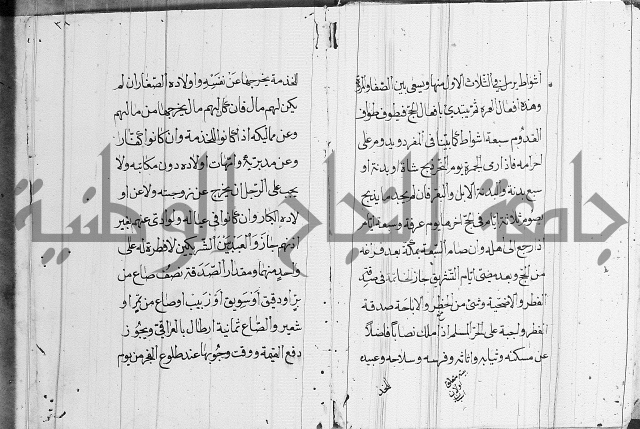 اشواط يرمل في الثلاث الاول منها ويسعى بين الصفا والمروة
وهذه افعال العمرة ثم يبتدئ بافعال الحج فيطوف طواف
القدوم سبعة اشواط كما بينا في المفرد ويدوم على
احرامه فاذا رمى الجمرة يوم النحر ذبح شاة او بدنة او
سبع بدنة والبدنة الابل والبقر فان لم يجد ما يذبح
يصوم ثلاثة ايام في الحج اخرها يوم عرفة وسبعة ايام
اذا رجع الى اهله وان صام السبعة بمكة بعد فرغه
من الحج وبعد مضي ايام التشريق جاز
الفطر والاضحية وشئ من الحظر والاباحة صدقة
الفطر واجبة على الحر المسلم اذا ملك نصابا فاضلا
عن مسكنه وثيابه واثاثه وفرسه وسلاحه وعبيده
للخد
٣٦
للخدمة يخرجها عن نفسه واولاده الصغار ان لم
يكن لهم مال فان كان لهم مال يخرجها من مالهم
وعن مماليكه اذا كانوا للخدمة وان كانوا كفار
وعن مدبريه وامهات اولاده دون مكاتبه ولا
يجب على الرجل ان يخرج عن زوجته ولا عن او
لاده الكبار وان كانوا في عياله ولو ادى عنهم بغير
اذنهم جاز والعبد بين الشريكين لا فطرة له على
واحد منهما ومقدار الصدقة نصف صاع من
بر او دقيق او سويق او زبيب او صاع من تمر او
شعير والصاع ثمانية ارطال بالعراقي ويجوز
دفع القيمة ووقت وجوبها عند طلوع الفجر من يوم
جامعة النجاح الوطنية